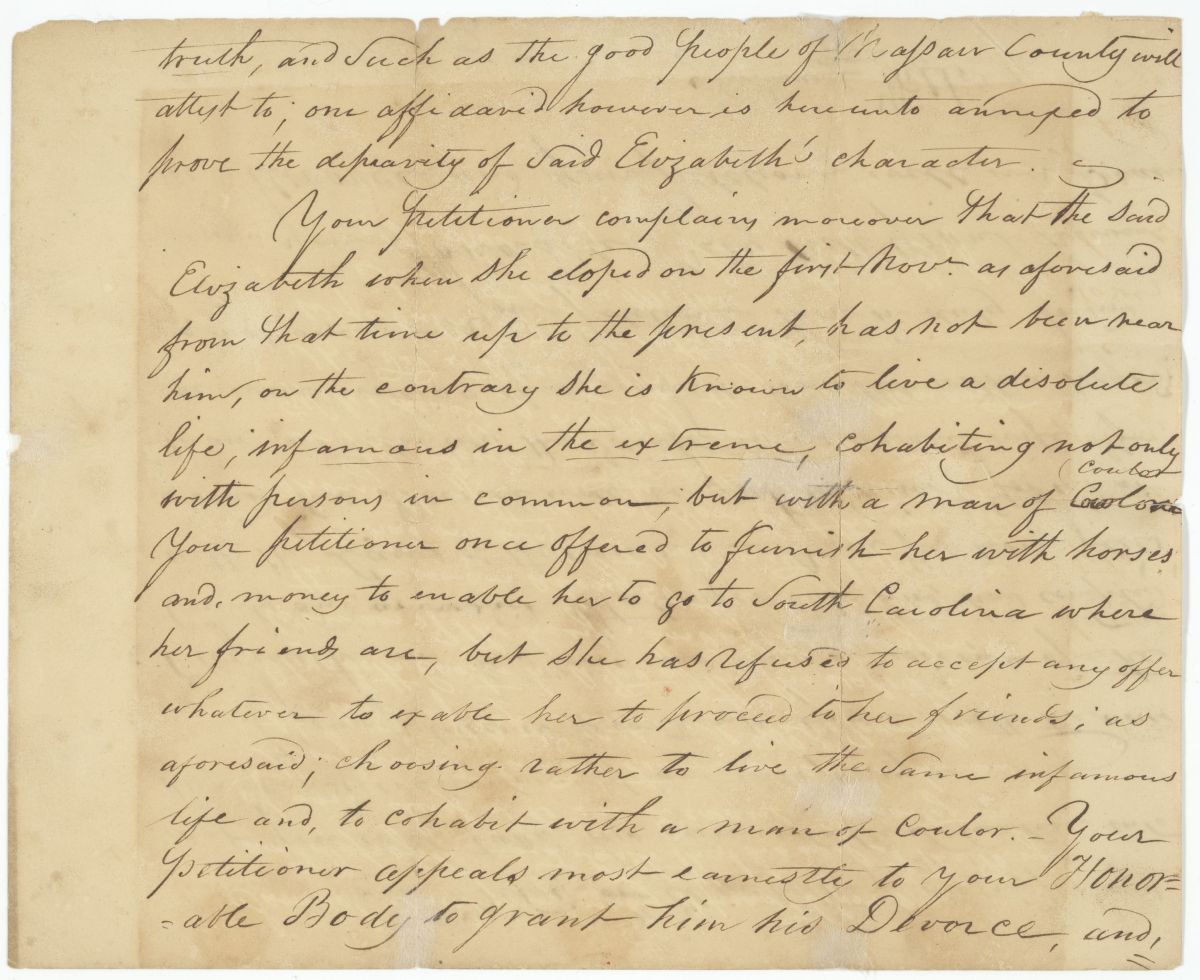 truth, and Such as the good people of Nassau County will
attest to; one affidavid however is hereunto annexed to
prove the depravity of Said Elizabeth's character.
Your Petitioner complains moreover that the Said
Elizabeth when She eloped on the first Novr. as aforesaid
from that time up to the present, has not been near
him, on the contrary She is Known to live a disolute
life, infamous in the extreme, cohabiting not only
coulor
with persons in common, but with a man of
Your Petitioner once offered to furnish her with horses
and, money to enable her to go to South Carolina where
her friends are, but She has refused to accept any offer
whatever to exable her to proceed to her friends; as
aforesaid; choosing rather to live the Same infamous
life and, to cohabit with a man of coulor. - Your
Petitioner appeals most earnestly to your Honor=
=able Body to grant him his Devorce, and,